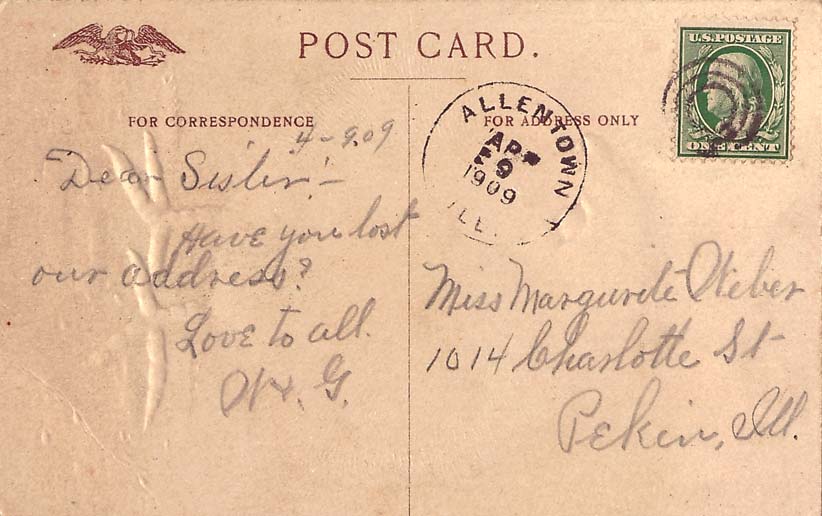 POST CARD.
U.S. POSTAGE
ONE CENT
FOR CORRESPONDENCE
FOR ADDRESS ONLY
ALLENTOWN
APR
9
1909
ILL.
4-9-09
Dear Sister:-
Have you lost
our address?
Love to all.
W. G.
Miss Margurete Weber
1014 Charlotte St
Pekin, Ill.